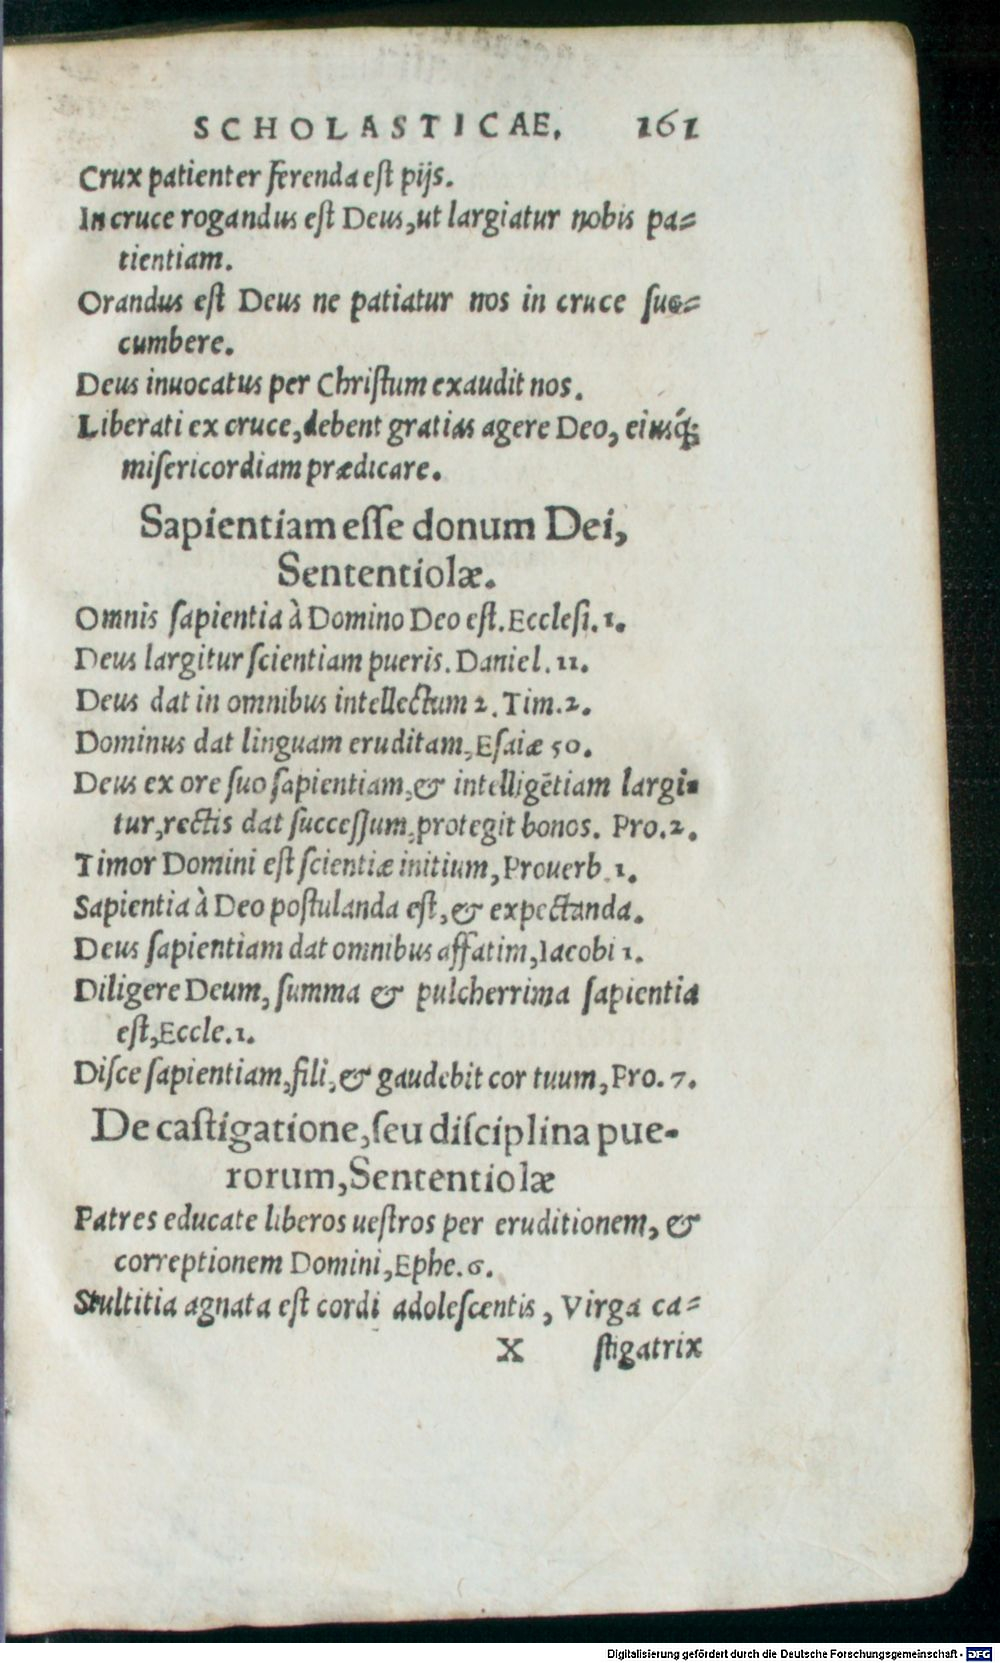 SCHOLASTICAE. 161
Crux patienter ferenda est pijs.
In cruce rogandus est Deus, ut largiatur nobis pa=
tientiam.
Orandus est Deus ne patiatur nos in cruce suc=
cumbere.
Deus inuocatus per Christum exaudit nos.
Liberati ex cruce, debent gratias agere Deo, eiusq́;
misericordiam prædicare.
Sapientiam esse donum Dei,
Sententiolæ.
Omnis sapientia à Domino Deo est. Ecclesi. 1.
Deus largitur scientiam pueris. Daniel. 11.
Deus dat in omnibus intellectum 2. Tim. 2.
Dominus dat linguam eruditam, Esaiæ 50.
Deus ex ore suo sapientiam, & intelligētiam largi-
tur, rectis dat successum, protegit bonos. Pro. 2.
Timor Domini est scientiæ initium, Prouerb. 1.
Sapientia à Deo postulanda est, & expectanda.
Deus sapientiam dat omnibus affatim, Iacobi 1.
Diligere Deum, summa & pulcherrima sapientia
est, Eccle. 1.
Disce sapientiam, fili, & gaudebit cor tuum, Pro. 7.
De castigatione, seu disciplina pue-
rorum, Sententiolæ
Patres educate liberos uestros per eruditionem, &
correptionem Domini, Ephe. 6.
Stultitia agnata est cordi adolescentis, Virga ca=
X stigatrix
Digitalisierung gefördert durch die Deutsche Forschungsgemeinschaft - DFG